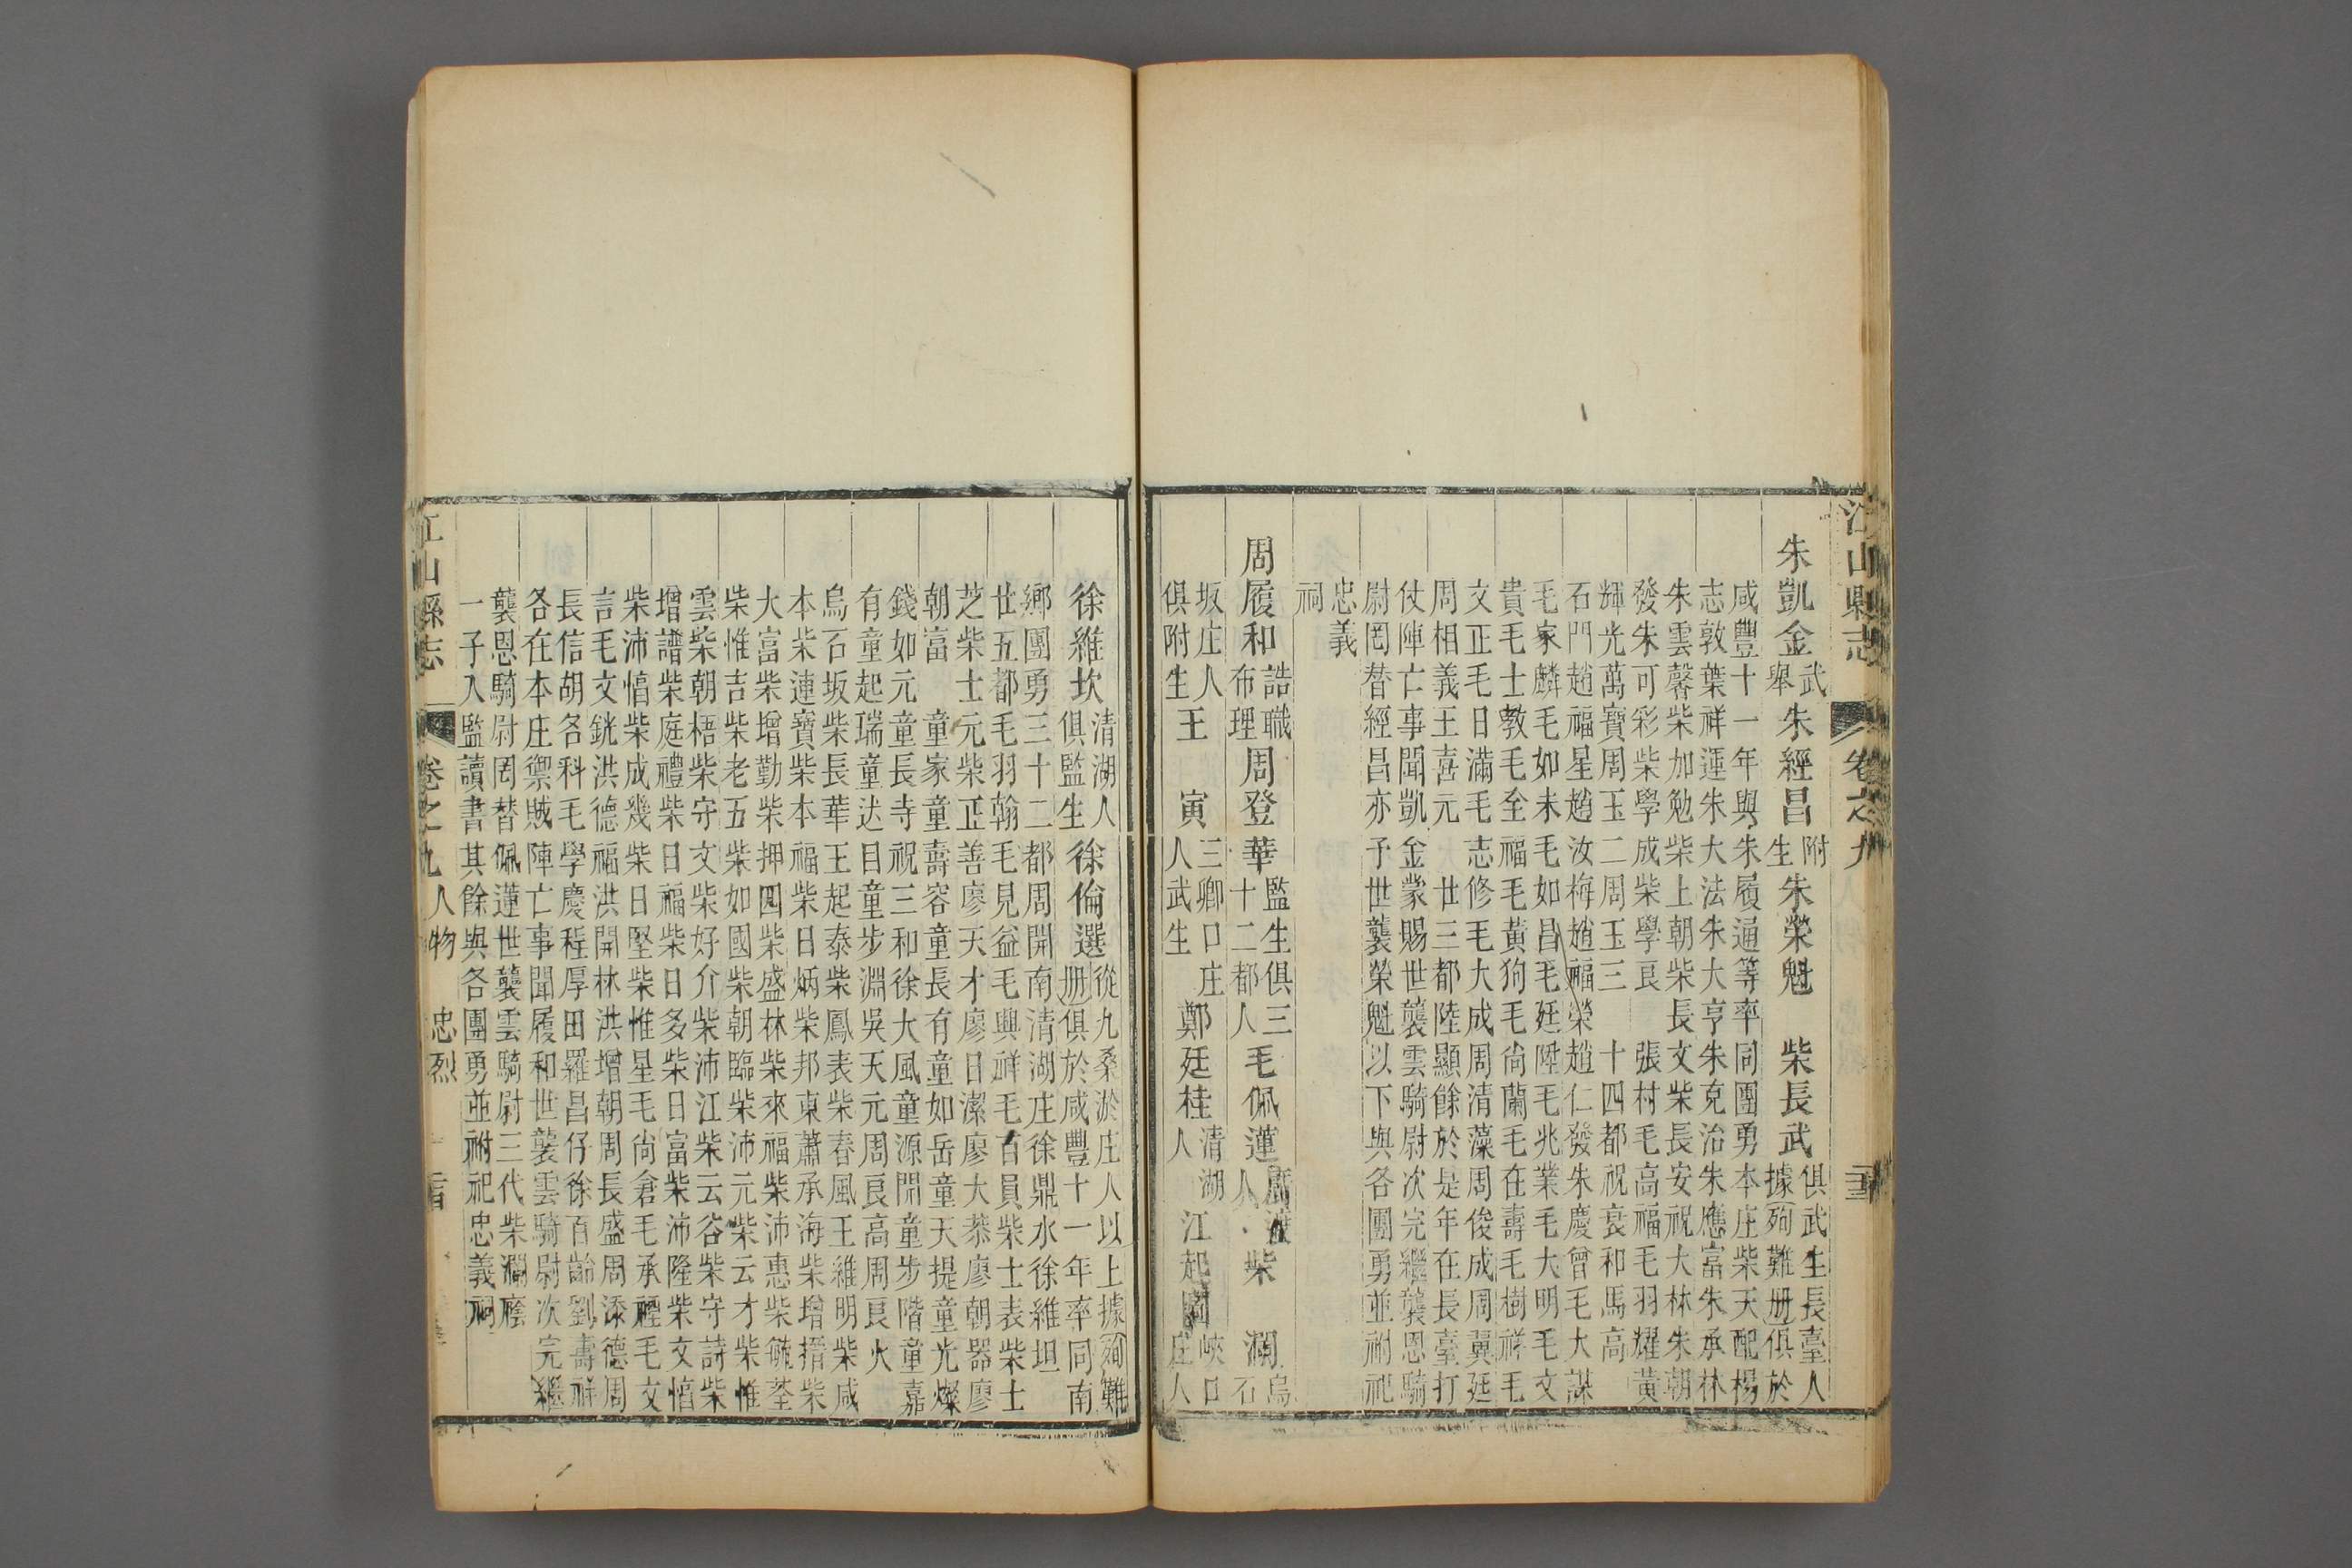 江山縣志 卷之九
朱凱金武舉朱經昌附生朱榮魁 柴長武俱武生長臺人據殉難册俱於
咸豐十一年與朱履通等率同團勇本庄柴天配楊
志敦葉祥運朱大法朱大亨朱克治朱應富朱承林
朱雲馨柴加勉柴上朝柴長文柴長安祝大林朱朝
發朱可彩柴學成柴學良 張村毛高福毛羽耀黃
輝光萬寶周玉二周玉三 十四都祝衰和馬高
石門趙福星趙汝梅趙福榮趙仁發朱慶曾毛大謀
毛家麟毛如未毛如昌毛廷陞毛兆業毛大明毛文
貴毛士教毛全福毛黃狗毛尙蘭毛在壽毛樹祥毛
文正毛日滿毛志修毛大成周清藻周俊成周翼廷
周相義王喜元 廿三都陸顯餘於是年在長臺打
仗陣亡事聞凱金蒙賜世襲雲騎尉次完繼襲恩騎
尉罔替經昌亦予世襲榮魁以下與各團勇並祔祀
忠義
祠
周履和誥職布理周登華監生俱三十二都人毛佩蓮人柴 瀾烏石
坂庄人俱附生王 寅三卿口庄人武生鄭廷桂清湖人江起峽口庄人
徐維坎清湖人俱監生徐倫選從九桑淤庄人以上據殉難册俱於咸豐十一年率同南
鄉團勇三十二都周開南清湖庄徐鼎水徐維坦
廿五都毛羽翰毛見益毛興祥毛百員柴士表柴士
芝柴士元柴正善廖天才廖日潔廖大恭廖朝器廖
朝富 童家童壽容童長有童如岳童天提童光燦
錢如元童長寺祝三和徐大風童源開童步階童嘉
有童起瑞童达目童步淵吳天元周良高周良火
烏石坂柴長華王起泰柴鳳表柴春風王維明柴咸
本柴連寶柴本福柴日炳柴邦東蕭承海柴增搢柴
大富柴增勤柴押四柴盛林柴來福柴沛惠柴荃
柴惟吉柴老五柴如國柴朝臨柴沛元柴云才柴惟
雲柴朝梧柴守文柴好介柴沛江柴云谷柴守詩柴
增譜柴庭禮柴日福柴日多柴日富柴沛隆柴文愭
柴沛愭柴成幾柴日堅柴惟星毛尙倉毛承禋毛文
言毛文銚洪德福洪開林洪增朝周長盛周添德周
長信胡各科毛學慶程厚田羅昌仔徐百齡劉壽祥
各在本庄禦賊陣亡事聞履和世襲雲騎尉次完繼
襲恩騎尉罔替佩蓮世襲雲騎尉三代柴瀾廕
一子入監讀書其餘與各團勇並祔祀忠義祠
江山縣志 卷之九 人物 忠烈